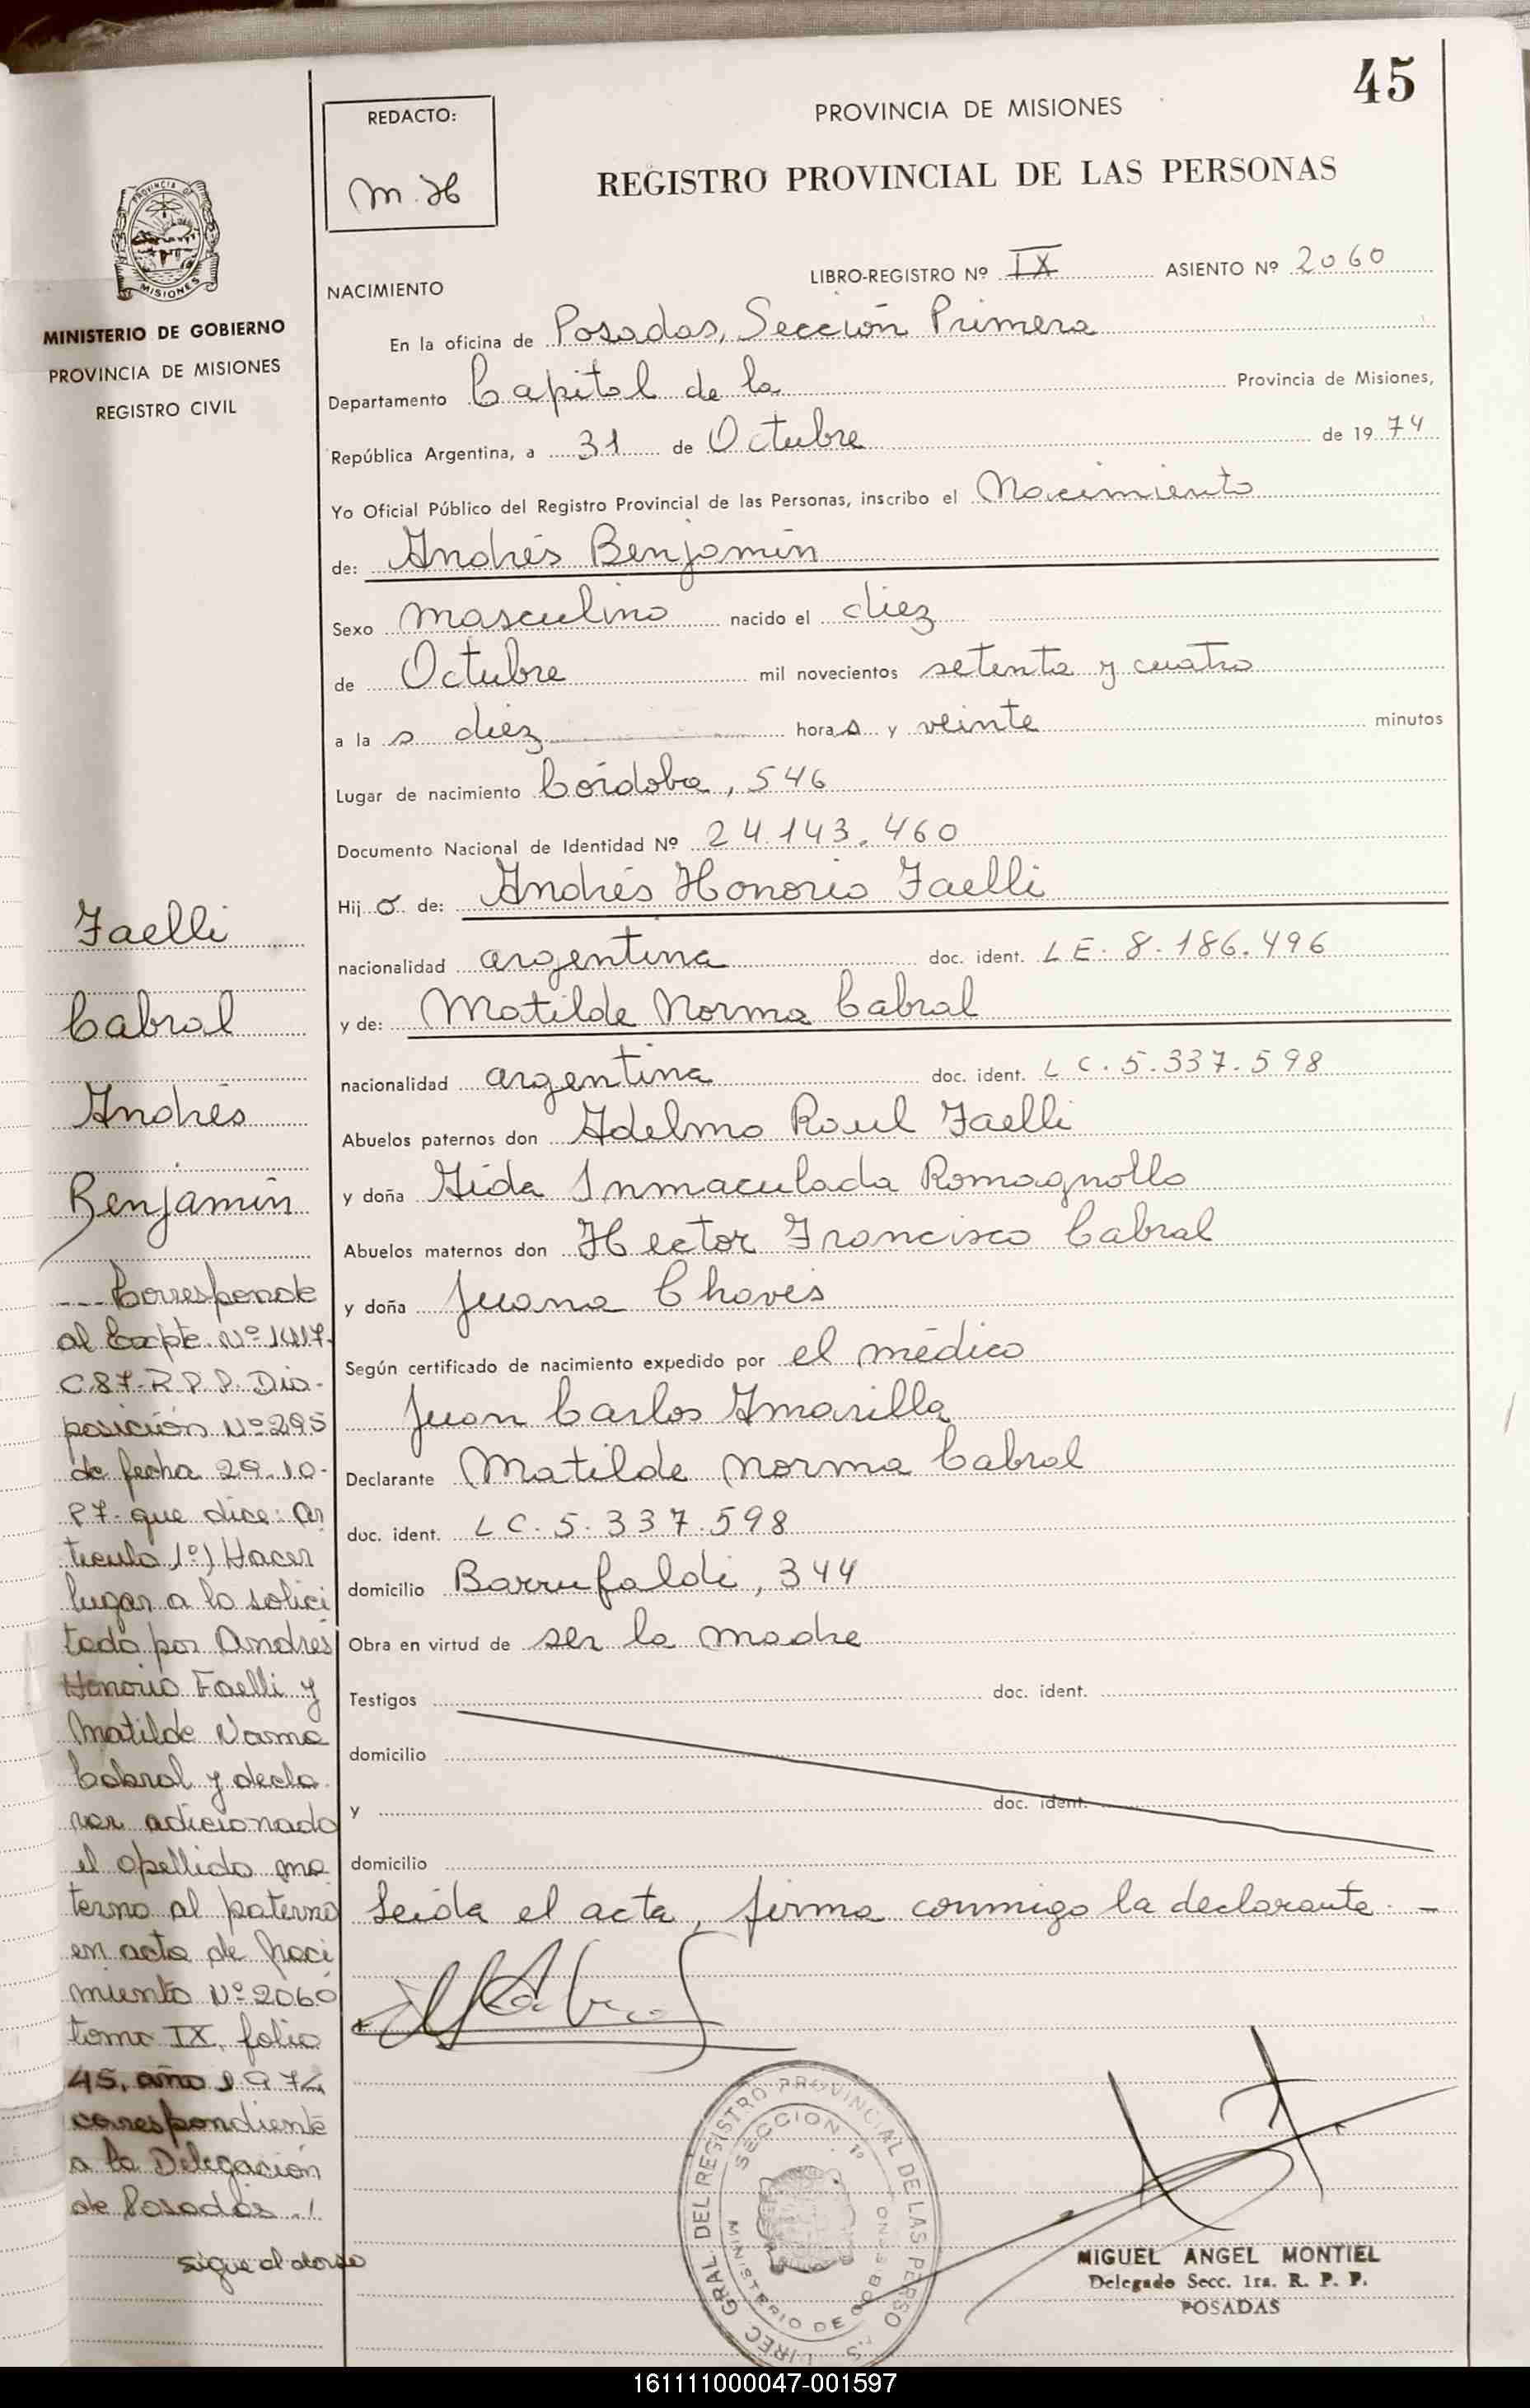 45
REDACTO:
M.H
PROVINCIA DE MISIONES
REGISTRO PROVINCIAL DE LAS PERSONAS
PROVINCIA DE
MISIONES
MINISTERIO DE GOBIERNO
PROVINCIA DE MISIONES
REGISTRO CIVIL
NACIMIENTO
LIBRO-REGISTRO Nº IX ASIENTO Nº 2060
En la oficina de Posadas, Sección Primera
Departamento Capital de la Provincia de Misiones,
República Argentina, a 31 de Octubre de 1974
Yo Oficial Público del Registro Provincial de las Personas, inscribo el Nacimiento
de: Andrés Benjamín
Sexo masculino nacido el diez
de Octubre mil novecientos setenta y cuatro
a la s diez hora s y veinte minutos
Lugar de nacimiento Córdoba, 546
Documento Nacional de Identidad Nº 24.143.460
Hij o de: Andrés Honorio Faelli
nacionalidad argentina doc. ident. LE. 8.186.496
y de: Matilde Norma Cabral
nacionalidad argentina doc. ident. LC. 5.337.598
Abuelos paternos don Adelmo Raul Faelli
y doña Aida Inmaculada Romagnollo
Abuelos maternos don Hector Francisco Cabral
y doña Juana Chaves
Según certificado de nacimiento expedido por el médico
Juan Carlos Amarilla
Declarante Matilde Norma Cabral
doc. ident. LC. 5.337.598
domicilio Barrufaldi, 344
Obra en virtud de ser la madre
Testigos doc. ident.
domicilio
y doc. ident.
domicilio
Leída el acta, firma conmigo la declarante. -
Faelli
Cabral
Andrés
Benjamín
--- Corresponde
al Expte. Nº 1417-
C87-R.P.P. Dis-
posición Nº 295
de fecha 29.10-
87- que dice: Ar
ticulo 1º) Hacer
lugar a lo solici
tado por Andrés
Honorio Faelli y
Matilde Norma
Cabral y decla
rar adicionado
el apellido ma
terno al paterno
en acta de Naci
miento Nº 2060
tomo IX, folio
45, año 1974
correspondiente
a la Delegación
de Posadas./
sigue al dorso
DIREC. GRAL. DEL REGISTRO PROVINCIAL DE LAS PERSO
SECCION 1º
MINISTERIO DE GOBIERNO
MIGUEL ANGEL MONTIEL
Delegado Secc. 1ra. R. P. P.
POSADAS
161111000047-001597